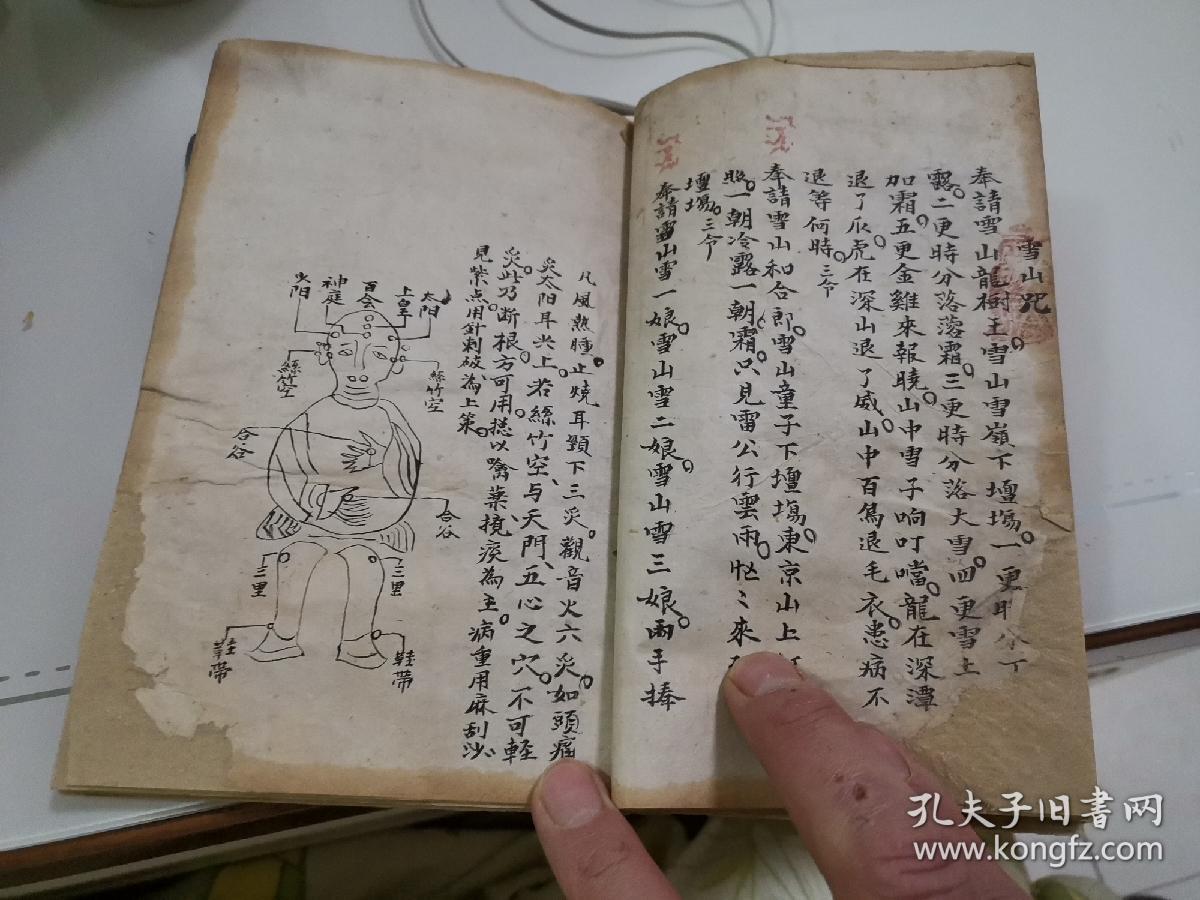 雪山咒
奉請雪山龍樹王。雪山雪嶺下壇塲。一更時分下
露。二更時分落濃霜。三更時分落大雪。四更雪上
加霜。五更金雞來報曉。山中雪子响叮噹。龍在深潭
退了爪。虎在深山退了威。山中百鳥退毛衣。患病不
退等何時。三令
奉請雪山和合郎。雪山童子下壇塲。東京山上
照。一朝冷露一朝霜。只見雷公行雲雨。忙〻來
壇塲。三令
奉請雪山雪一娘。雪山雪二娘。雪山雪三娘。兩手捧
凡風熱腫。止燒耳顋下三炙。觀音火六炙。如頭痛
炙太阳耳尖上。若絲竹空、与天門、五心之穴。不可輕
炙。此乃斷根。方可用。搃以噙藥、撹痰為主。病重用麻刮沙
見紫点用針刺破為上策。
太阳
上皇
百会
神庭
太阳
絲竹空
絲竹空
合谷
合谷
三里
三里
鞋帶
鞋帶
孔夫子旧书网
www.kongfz.com